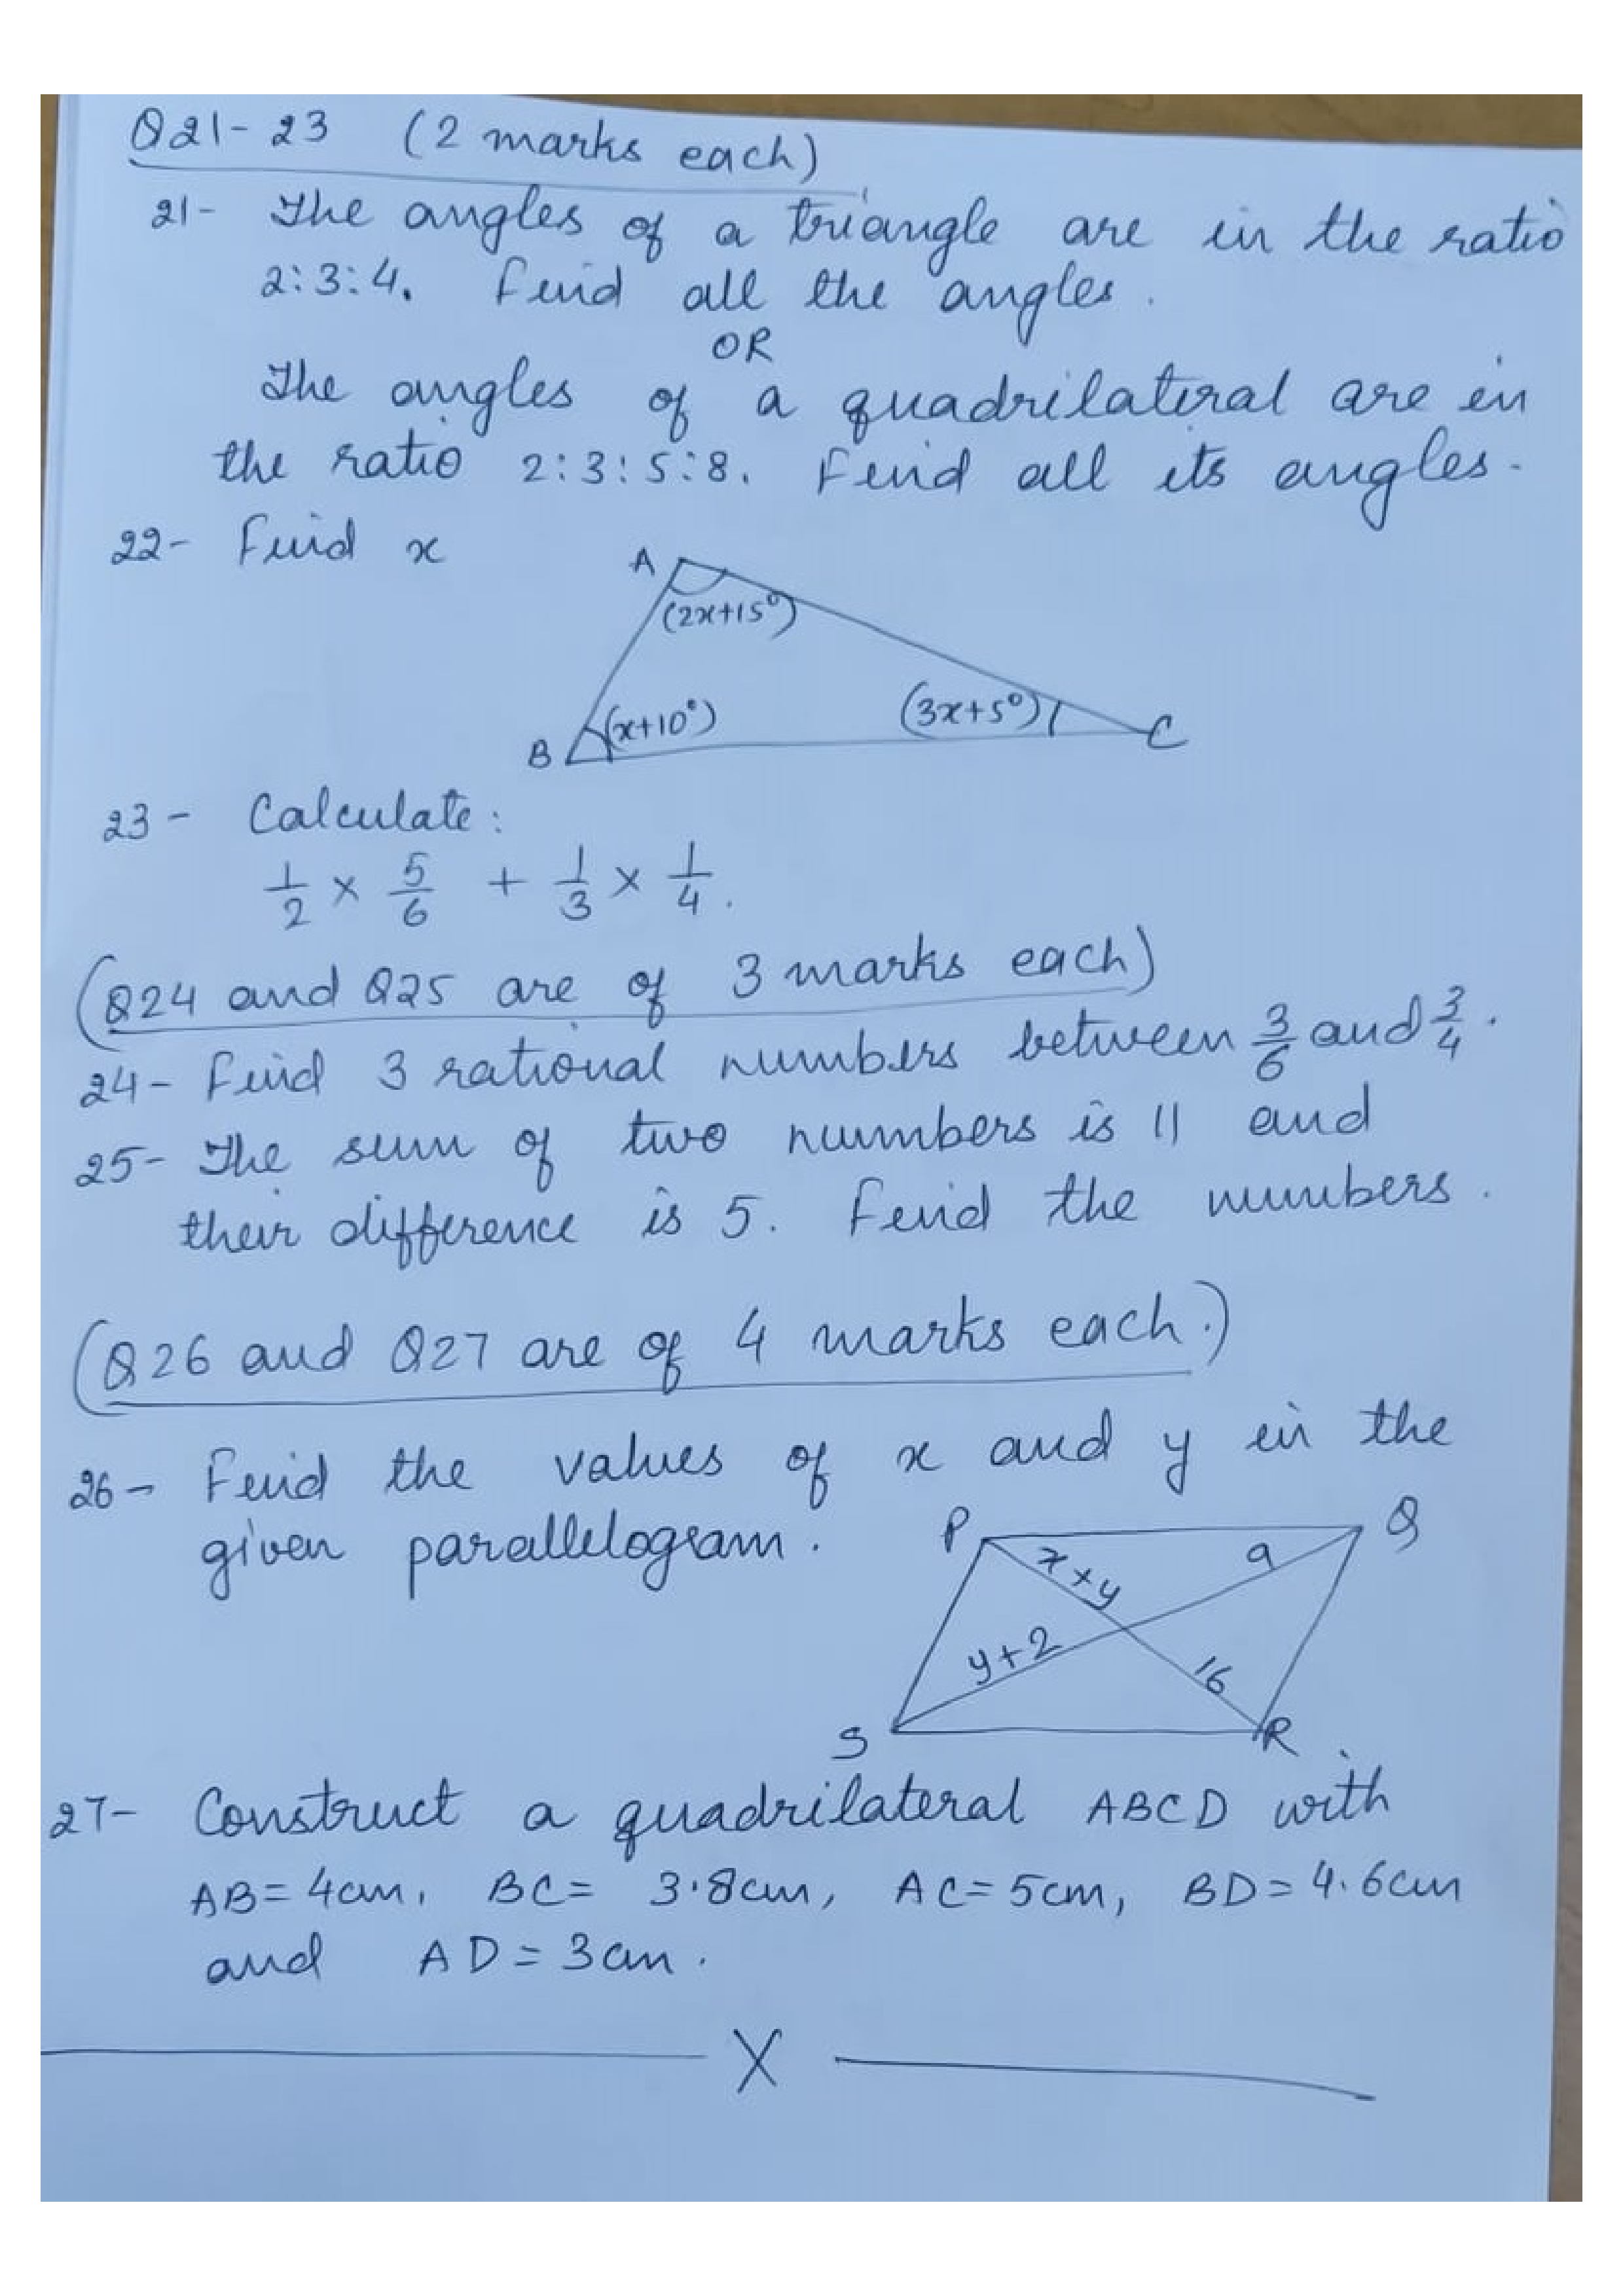 Q21-23 (2 marks each)
21- The angles of a triangle are in the ratio
2:3:4. Find all the angles.
OR
The angles of a quadrilateral are in
the ratio 2:3:5:8. Find all its angles.
22- Find x
A
(2x+15°)
(x+10°)
(3x+5°)
B
C
23- Calculate:
1/2 × 5/6 + 1/3 × 1/4.
(Q24 and Q25 are of 3 marks each)
24- Find 3 rational numbers between 3/6 and 3/4.
25- The sum of two numbers is 11 and
their difference is 5. Find the numbers.
(Q26 and Q27 are of 4 marks each.)
26- Find the values of x and y in the
given parallelogram.
P
Q
x+y
9
y+2
16
S
R
27- Construct a quadrilateral ABCD with
AB=4cm, BC= 3.8cm, AC=5cm, BD=4.6cm
and AD=3cm.
X